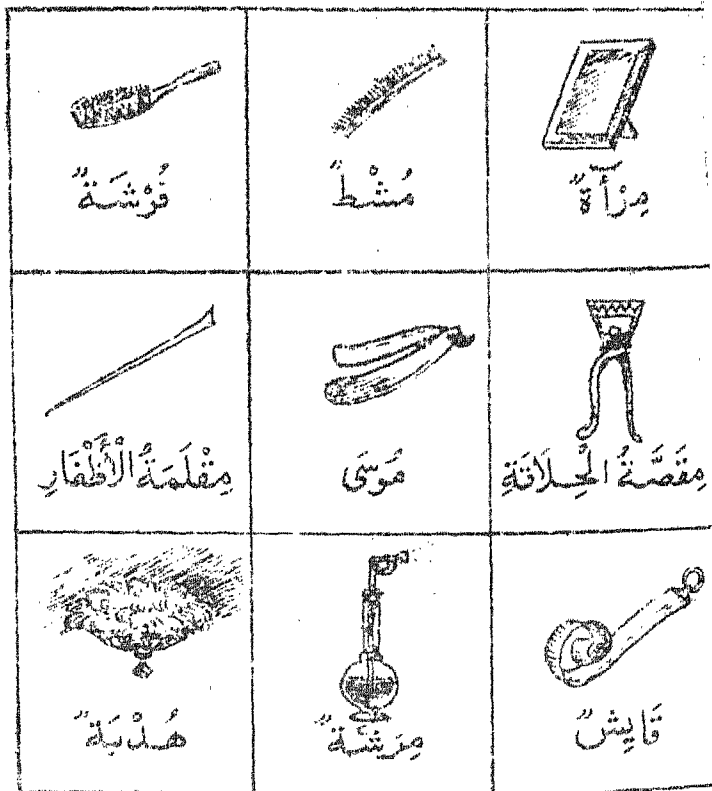 مِرْآةٌ
مُشْطٌ
فُرْشَةٌ
مِقَصَّةُ الْحِلَاقَةِ
مُوسَى
مِقْلَمَةُ الْأَظْفَارِ
قَايِشٌ
مِرَشَّةٌ
هُدْبَةٌ